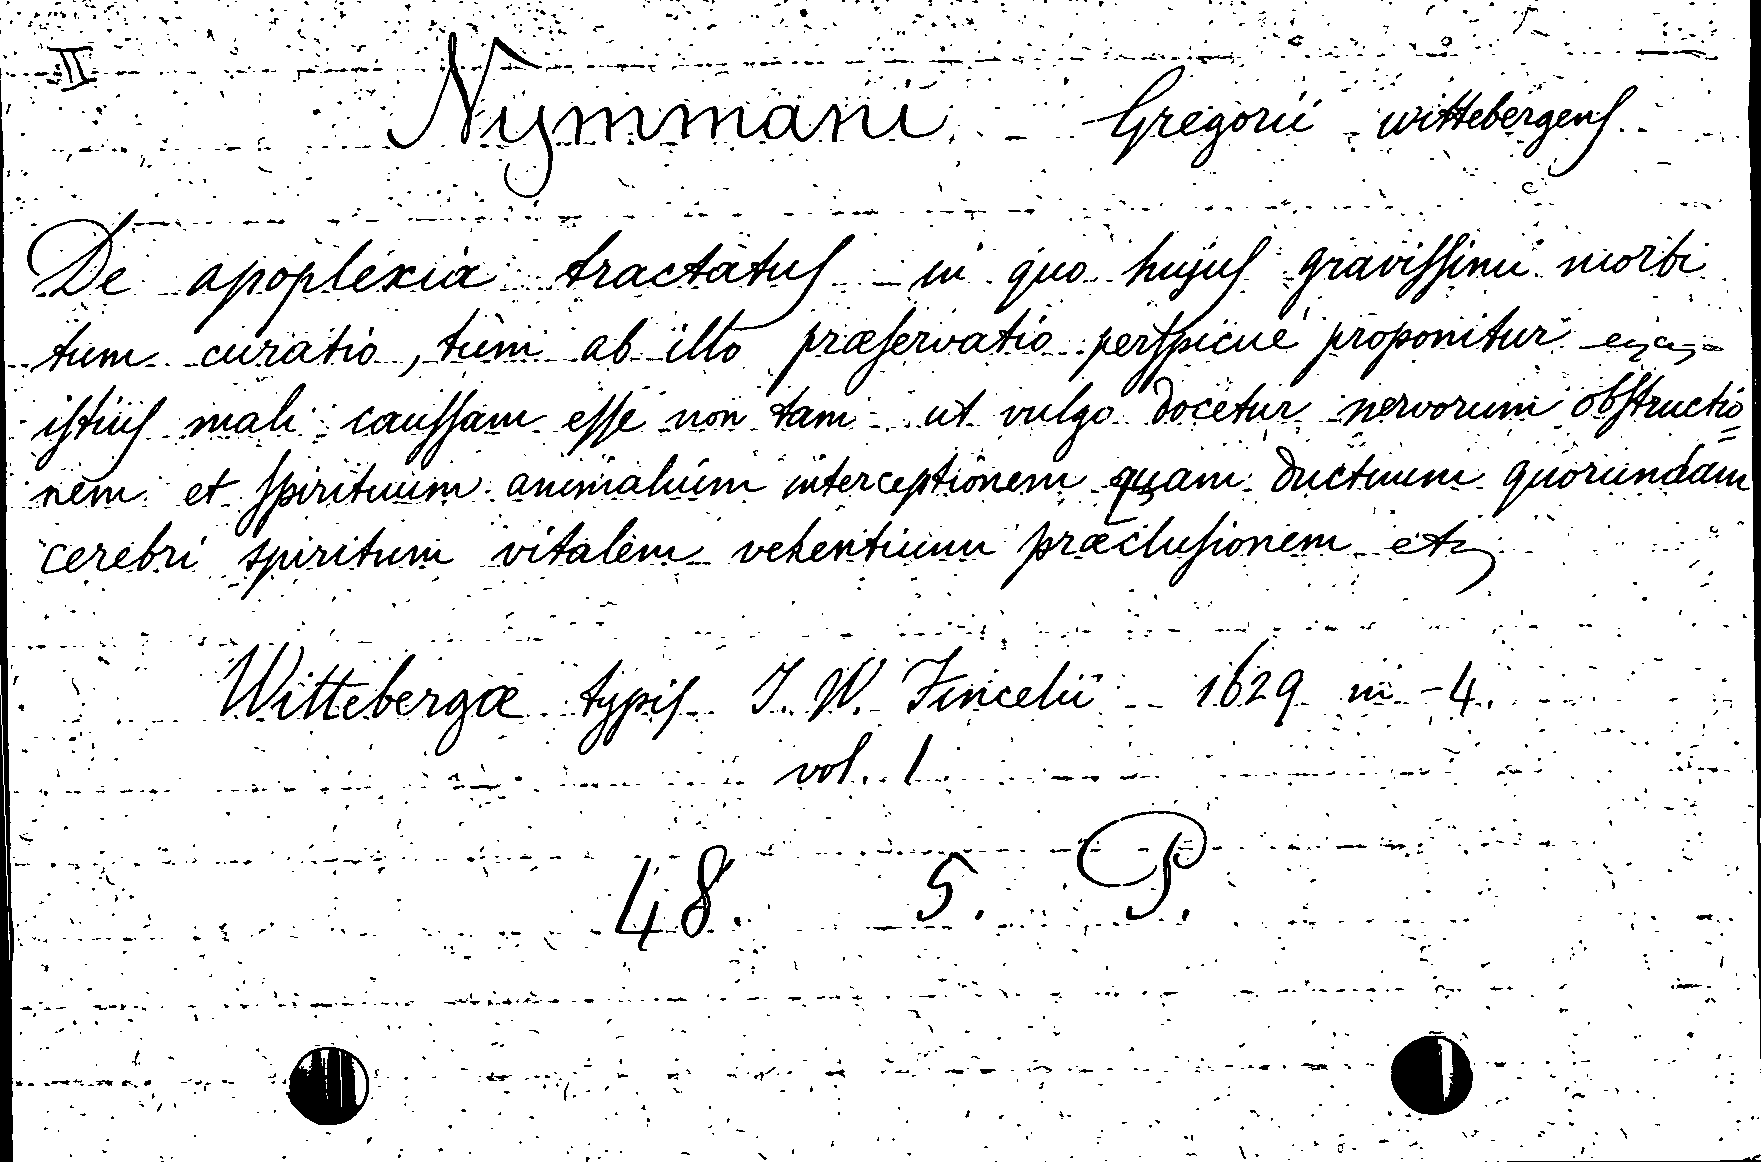 II
Nymmani Gregorii wittebergens
De apoplexia tractatus in quo hujus gravissimi morbi
tum curatio, tum ab illo præservatio perspicue proponitur
istius mali caussam esse non tam ut vulgo docetur nervorum obstructio=
nem et spirituum animalium interceptionem quam ductuum quorundam
cerebri spiritum vitalem vehentium præclusionem etc
Wittebergæ typis J. W. Fincelii 1629 in-4.
vol. 1
48. 5. P.